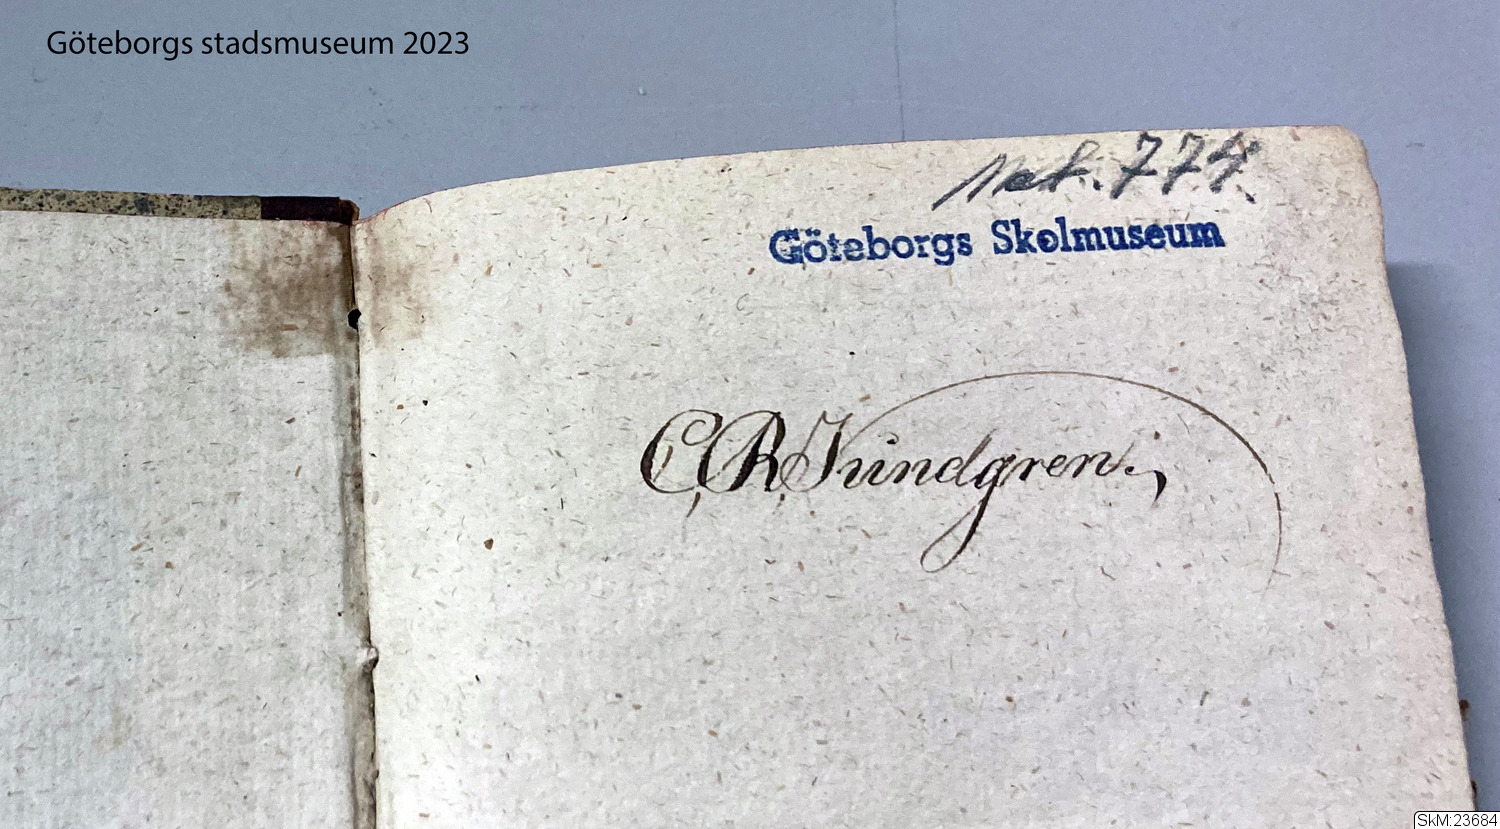 Göteborgs stadsmuseum 2023
774.
Göteborgs Skolmuseum
C, R, Lundgren.
SkM:23684